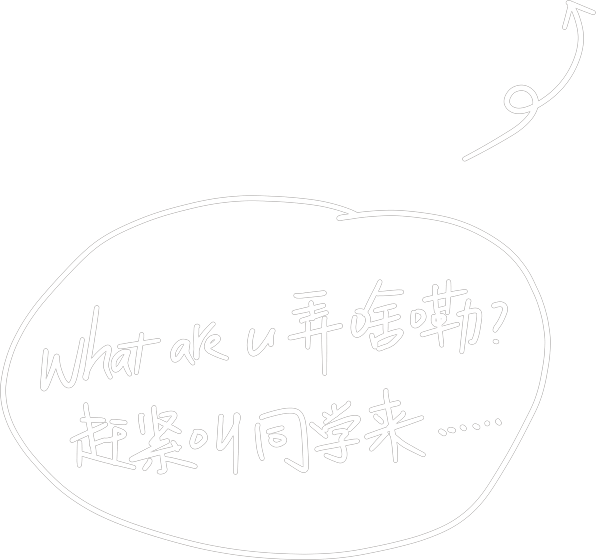 What are u 弄啥嘞?
赶紧叫同学来......